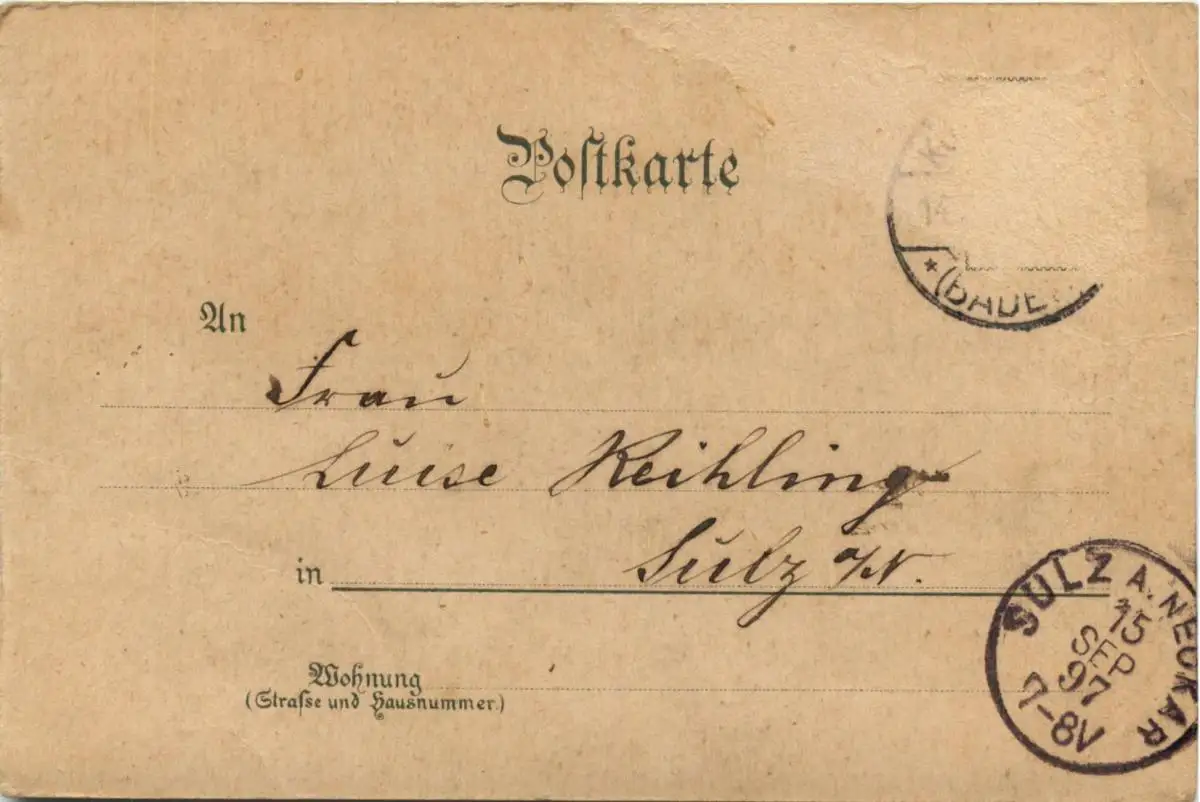 Postkarte
14
* (BADEN)
An
Frau
Luise Reihling
in Sulz a/N.
SULZ A. NECKAR
15
SEP
97
7-8V
Wohnung
(Straſse und Hausnummer.)